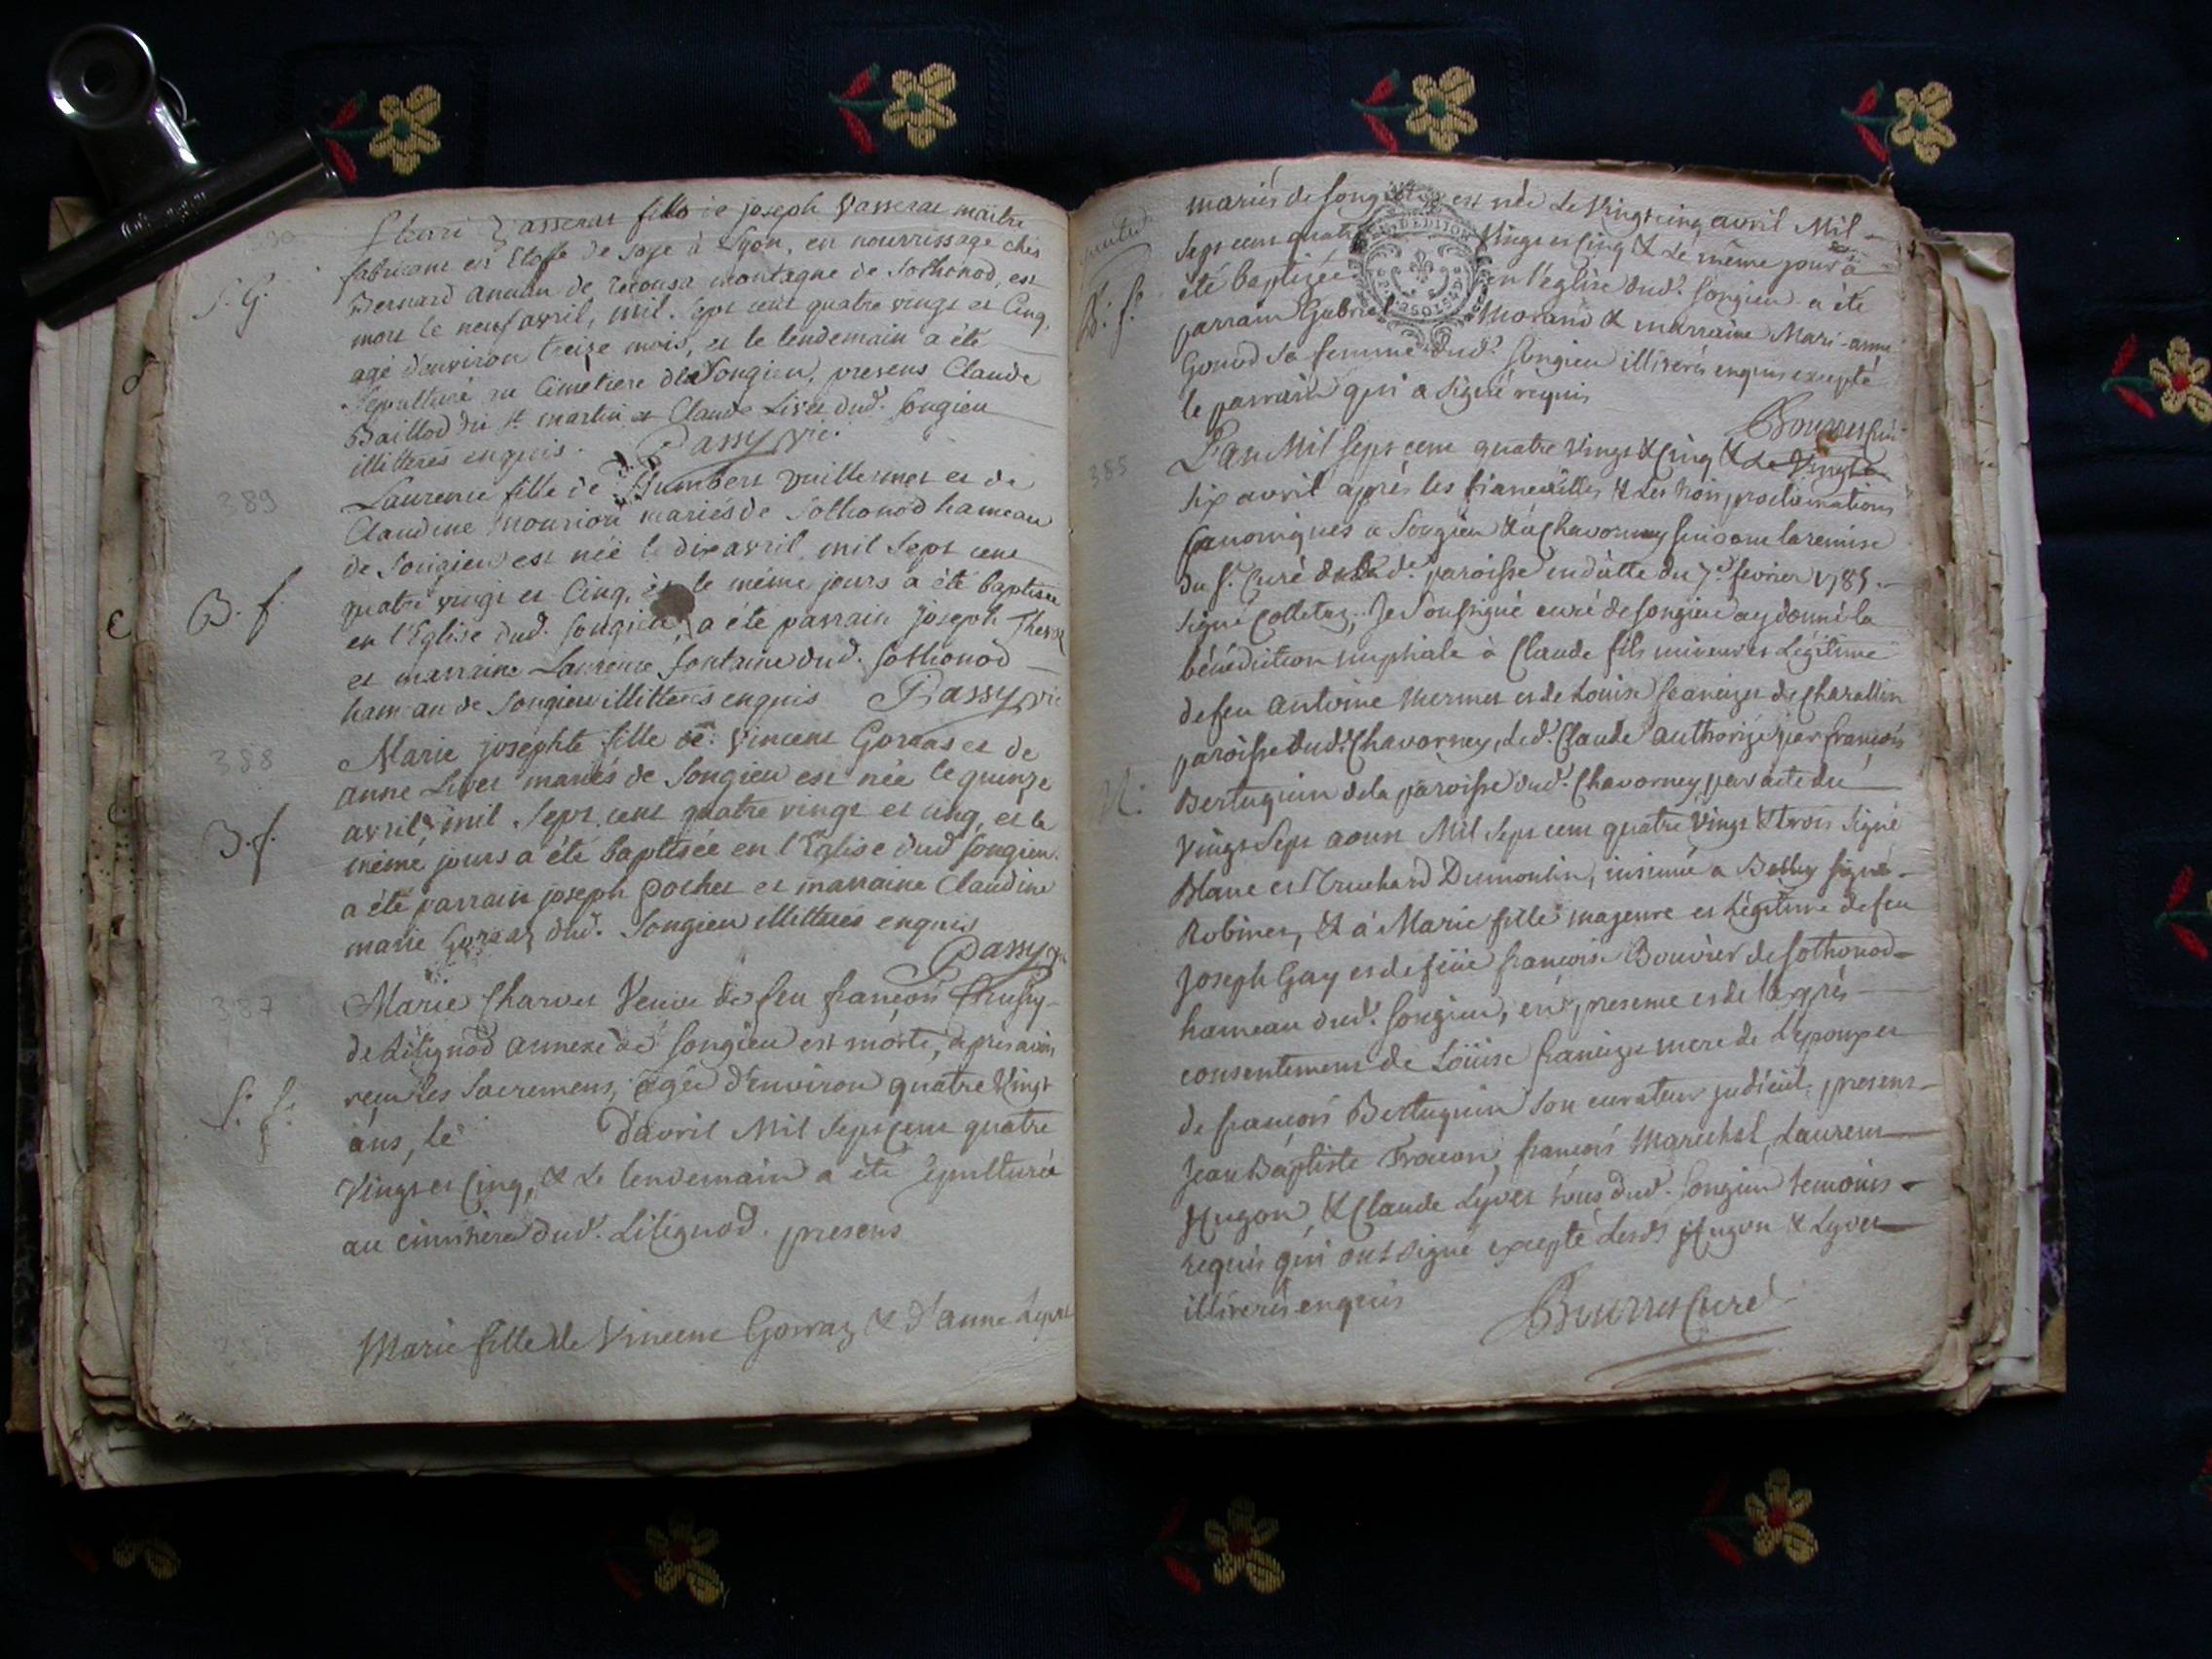 390
fils de joseph Vasserat maitre
fabricant en Etoffe de soye à Lyon, en nourrissage chés
Bernard montagne de Sothonod, est
S. G.
mort le neuf avril, mil sept cent quatre vingt et Cinq,
agé d'environ treize mois, et le lendemain a été
sepulturé au Cimetiere de Songieu, presens Claude
Baillod du st martin et Claude Livet dud. Songieu
illitterés enquis. Passy vic.
389
Laurence fille de Humbert Vuillermet et de
Claudine mariés de Sothonod hameau
de Songieu est née le dix avril mil sept cent
quatre vingt et Cinq, et le méme jours a été baptisée
B. f.
en l'Eglise dud. Songieu, a été parrain joseph
et marraine Laurence fontaine dud. Sothonod
hameau de Songieu illitterés enquis Passy vic
388
Marie josephte fille de Vincent Gorraz et de
anne Livet mariés de Songieu est née le quinze
avril mil sept cent quatre vingt et cinq, et le
B. f.
méme jours a été baptisée en l'Eglise dud Songieu.
a été parrain joseph pochet et marraine Claudine
marie Gorraz dud. Songieu illitterés enquis
Passy
387
Marie Charvet Veuve de feu françois
de Lilignod annexe de Songieu est morte, après avoir
reçu les Sacremens, agée d'environ quatre Vingt
S. f.
ans, le d'avril Mil Sept cent quatre
Vingt et Cinq, & le lendemain a été Sepulturée
au cimitière dud. Lilignod. presens
386
Marie fille de Vincent Gorraz & d'anne Lyvet
mariés de Songieu est née le Vingt cinq avril Mil
Sept cent quatre Vingt et Cinq & le même jour a
B. f.
été baptizée en l'église dud. Songieu a été
parrain Gabriel Morand & marraine Mari-anne
Gonod sa femme dud. Songieu illiterés enquis excepté
le parrain qui a signé requis
385
L'an Mil Sept cent quatre Vingt & Cinq & le Vingt
Six avril après les fiancailles & les trois proclamations
Canoniques a Songieu & à Chavorney suivant la remise
du Sr. Curé de lad. paroisse en datte du 7e. fevrier 1785.
Signé Colletaz, Je Soussigné curé de Songieu ay donné la
bénédiction nuptiale à Claude fils mineur et Légitime
de feu antoine Mermet et de Louise françizu de Charallin
paroisse dud. Chavorney, led. Claude authorizé par françois
M.
Bertuguin de la paroisse dud. Chavorney par acte du
Vingt Sept aoust Mil Sept cent quatre Vingt & trois Signé
Blanc et Truchard Dumoulin, insinué a Belley Signé
Robinet, & à Marie fille majeure et Légitime de feu
Joseph Gay et de feüe françoise Bouvier de Sothonod
hameau dud. Songieu, en presence et de l'exprès
consentement de Loüise françizu mere de L'epoux et
de françois Bertuguin Son curateur judiciel, presens
Jean Baptiste françois Marechal, Laurent
Hugon, & Claude Lyvet tous dud. Songieu temoins
requis qui ont signé excepté lesds Hugon & Lyvet
illiterés enquis
Curé